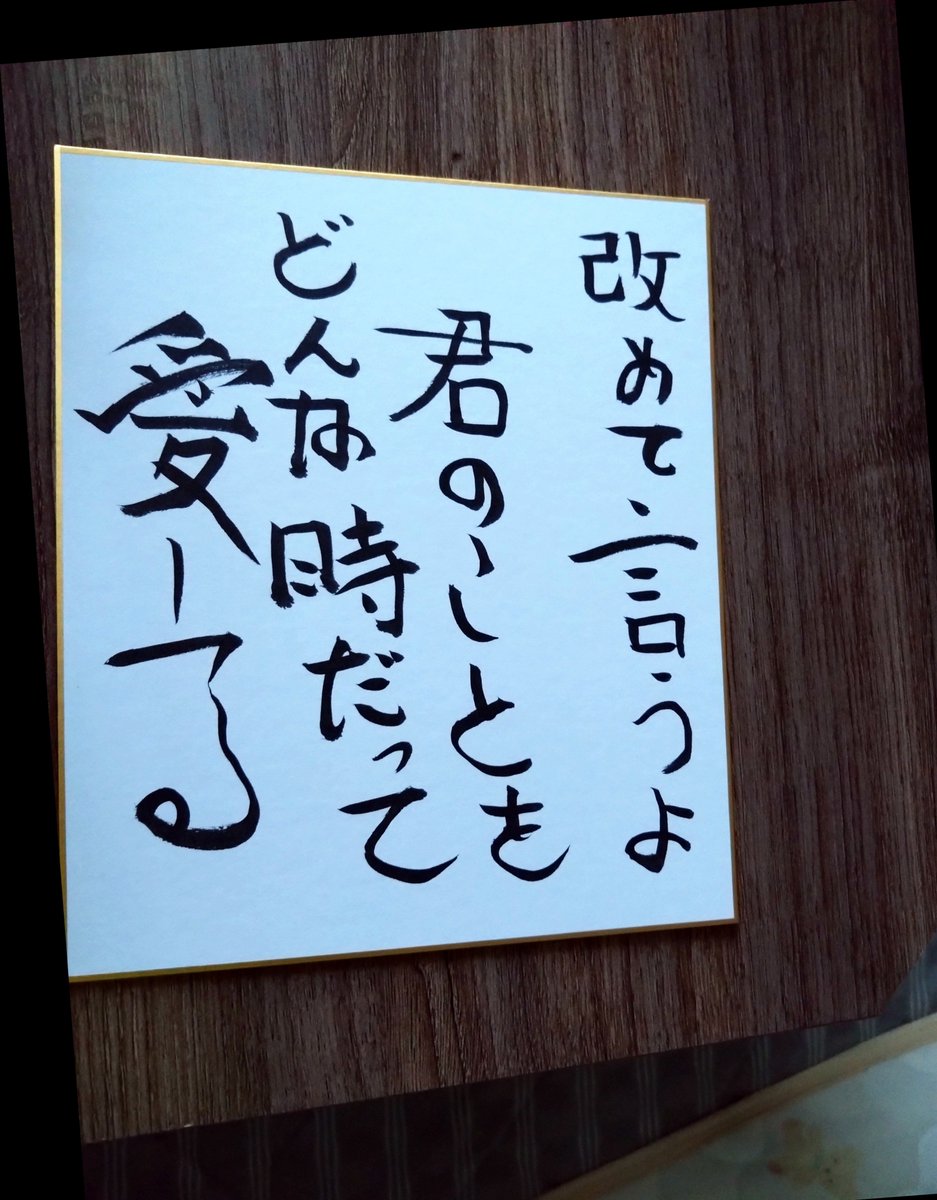 改めて言うよ
君のことを
どんな時だって
愛してる